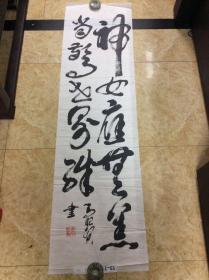 神女应无恙
当惊世界殊
书